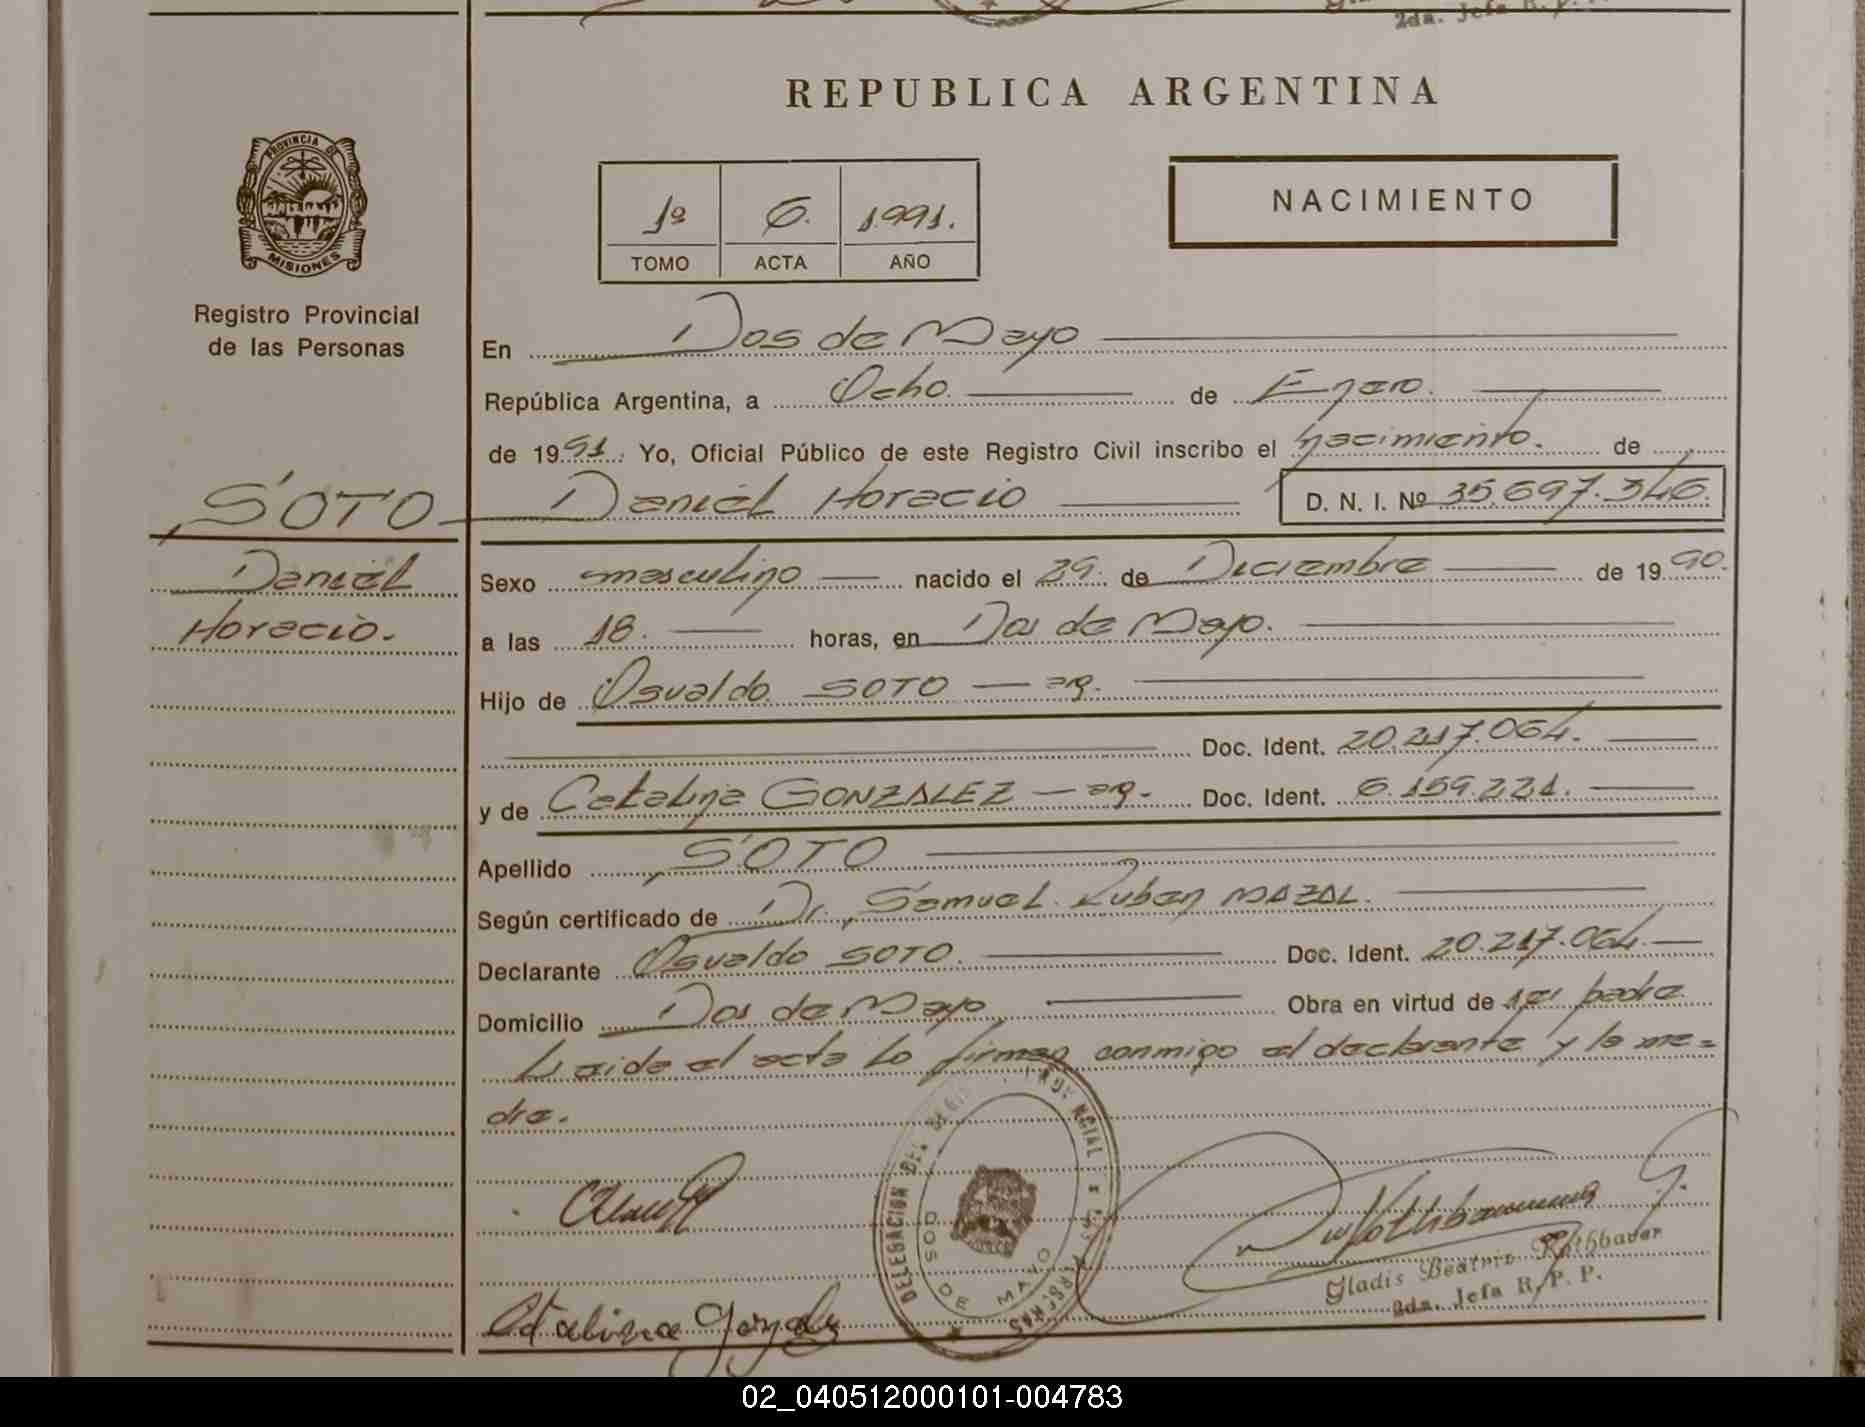 2da. Jefa R. P. P.
REPUBLICA ARGENTINA
PROVINCIA DE
MISIONES
Registro Provincial
de las Personas
1º 6. 1.991.
TOMO ACTA AÑO
NACIMIENTO
En Dos de Mayo
República Argentina, a Ocho. de Enero.
de 1991. Yo, Oficial Público de este Registro Civil inscribo el nacimiento. de
SOTO Daniel Horacio D. N. I. Nº 35.697.346.
Daniel
Horacio.
Sexo masculino nacido el 29. de Diciembre de 1990.
a las 18. horas, en Dos de Mayo.
Hijo de Osvaldo SOTO — ar.
Doc. Ident. 20.217.064.
y de Catalina GONZALEZ — ar. Doc. Ident. 6.159.221.
Apellido SOTO
Según certificado de Dr. Samuel Ruben MAZAL.
Declarante Osvaldo SOTO. Doc. Ident. 20.217.064.
Domicilio Dos de Mayo Obra en virtud de ser padre
Leida el acta lo firman conmigo el declarante y la ma=
dre.
DELEGACION DEL REGISTRO PROVINCIAL DE LAS PERSONAS
DOS DE MAYO
Gladis Beatriz Rothbauer
2da. Jefa R. P. P.
Catalina Gonzalez
02_040512000101-004783